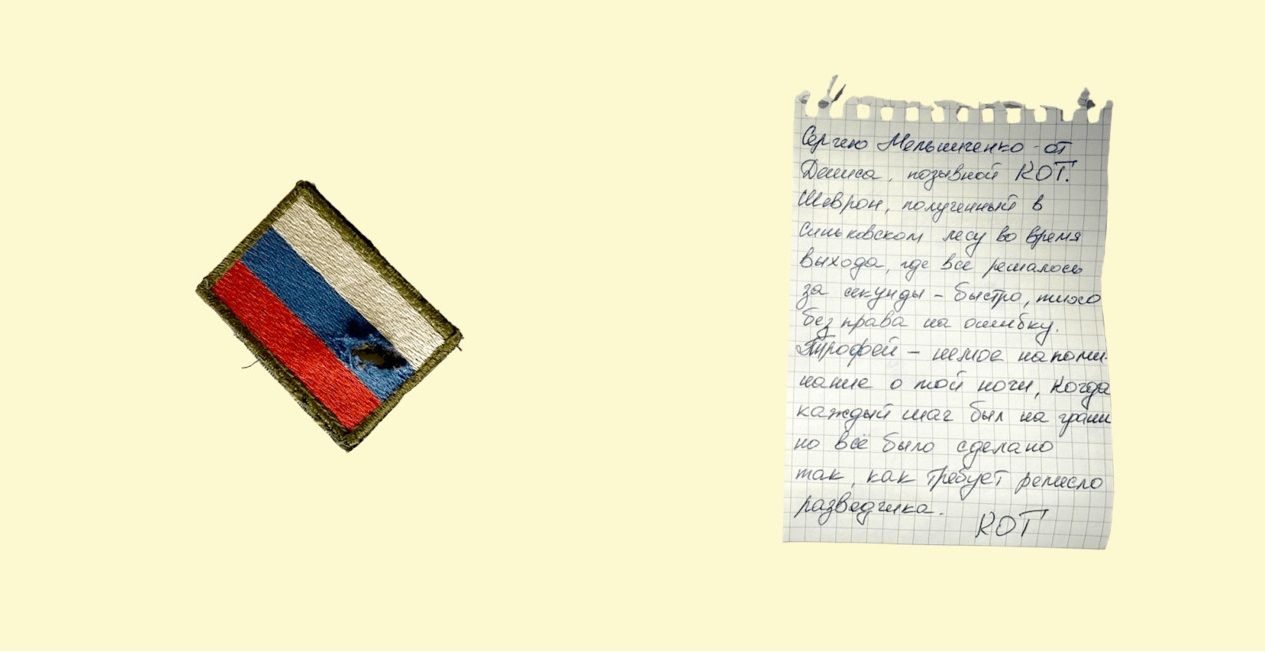 Сергею Мельниченко - от
Дениса, позывной КОТ.
Шеврон, полученный в
Синьковском лесу во время
выхода, где всё решалось
за секунды - быстро, тихо
без права на ошибку.
Трофей - немое напоми-
нание о той ночи, когда
каждый шаг был на грани
но всё было сделано
так, как требует ремесло
разведчика.
КОТ